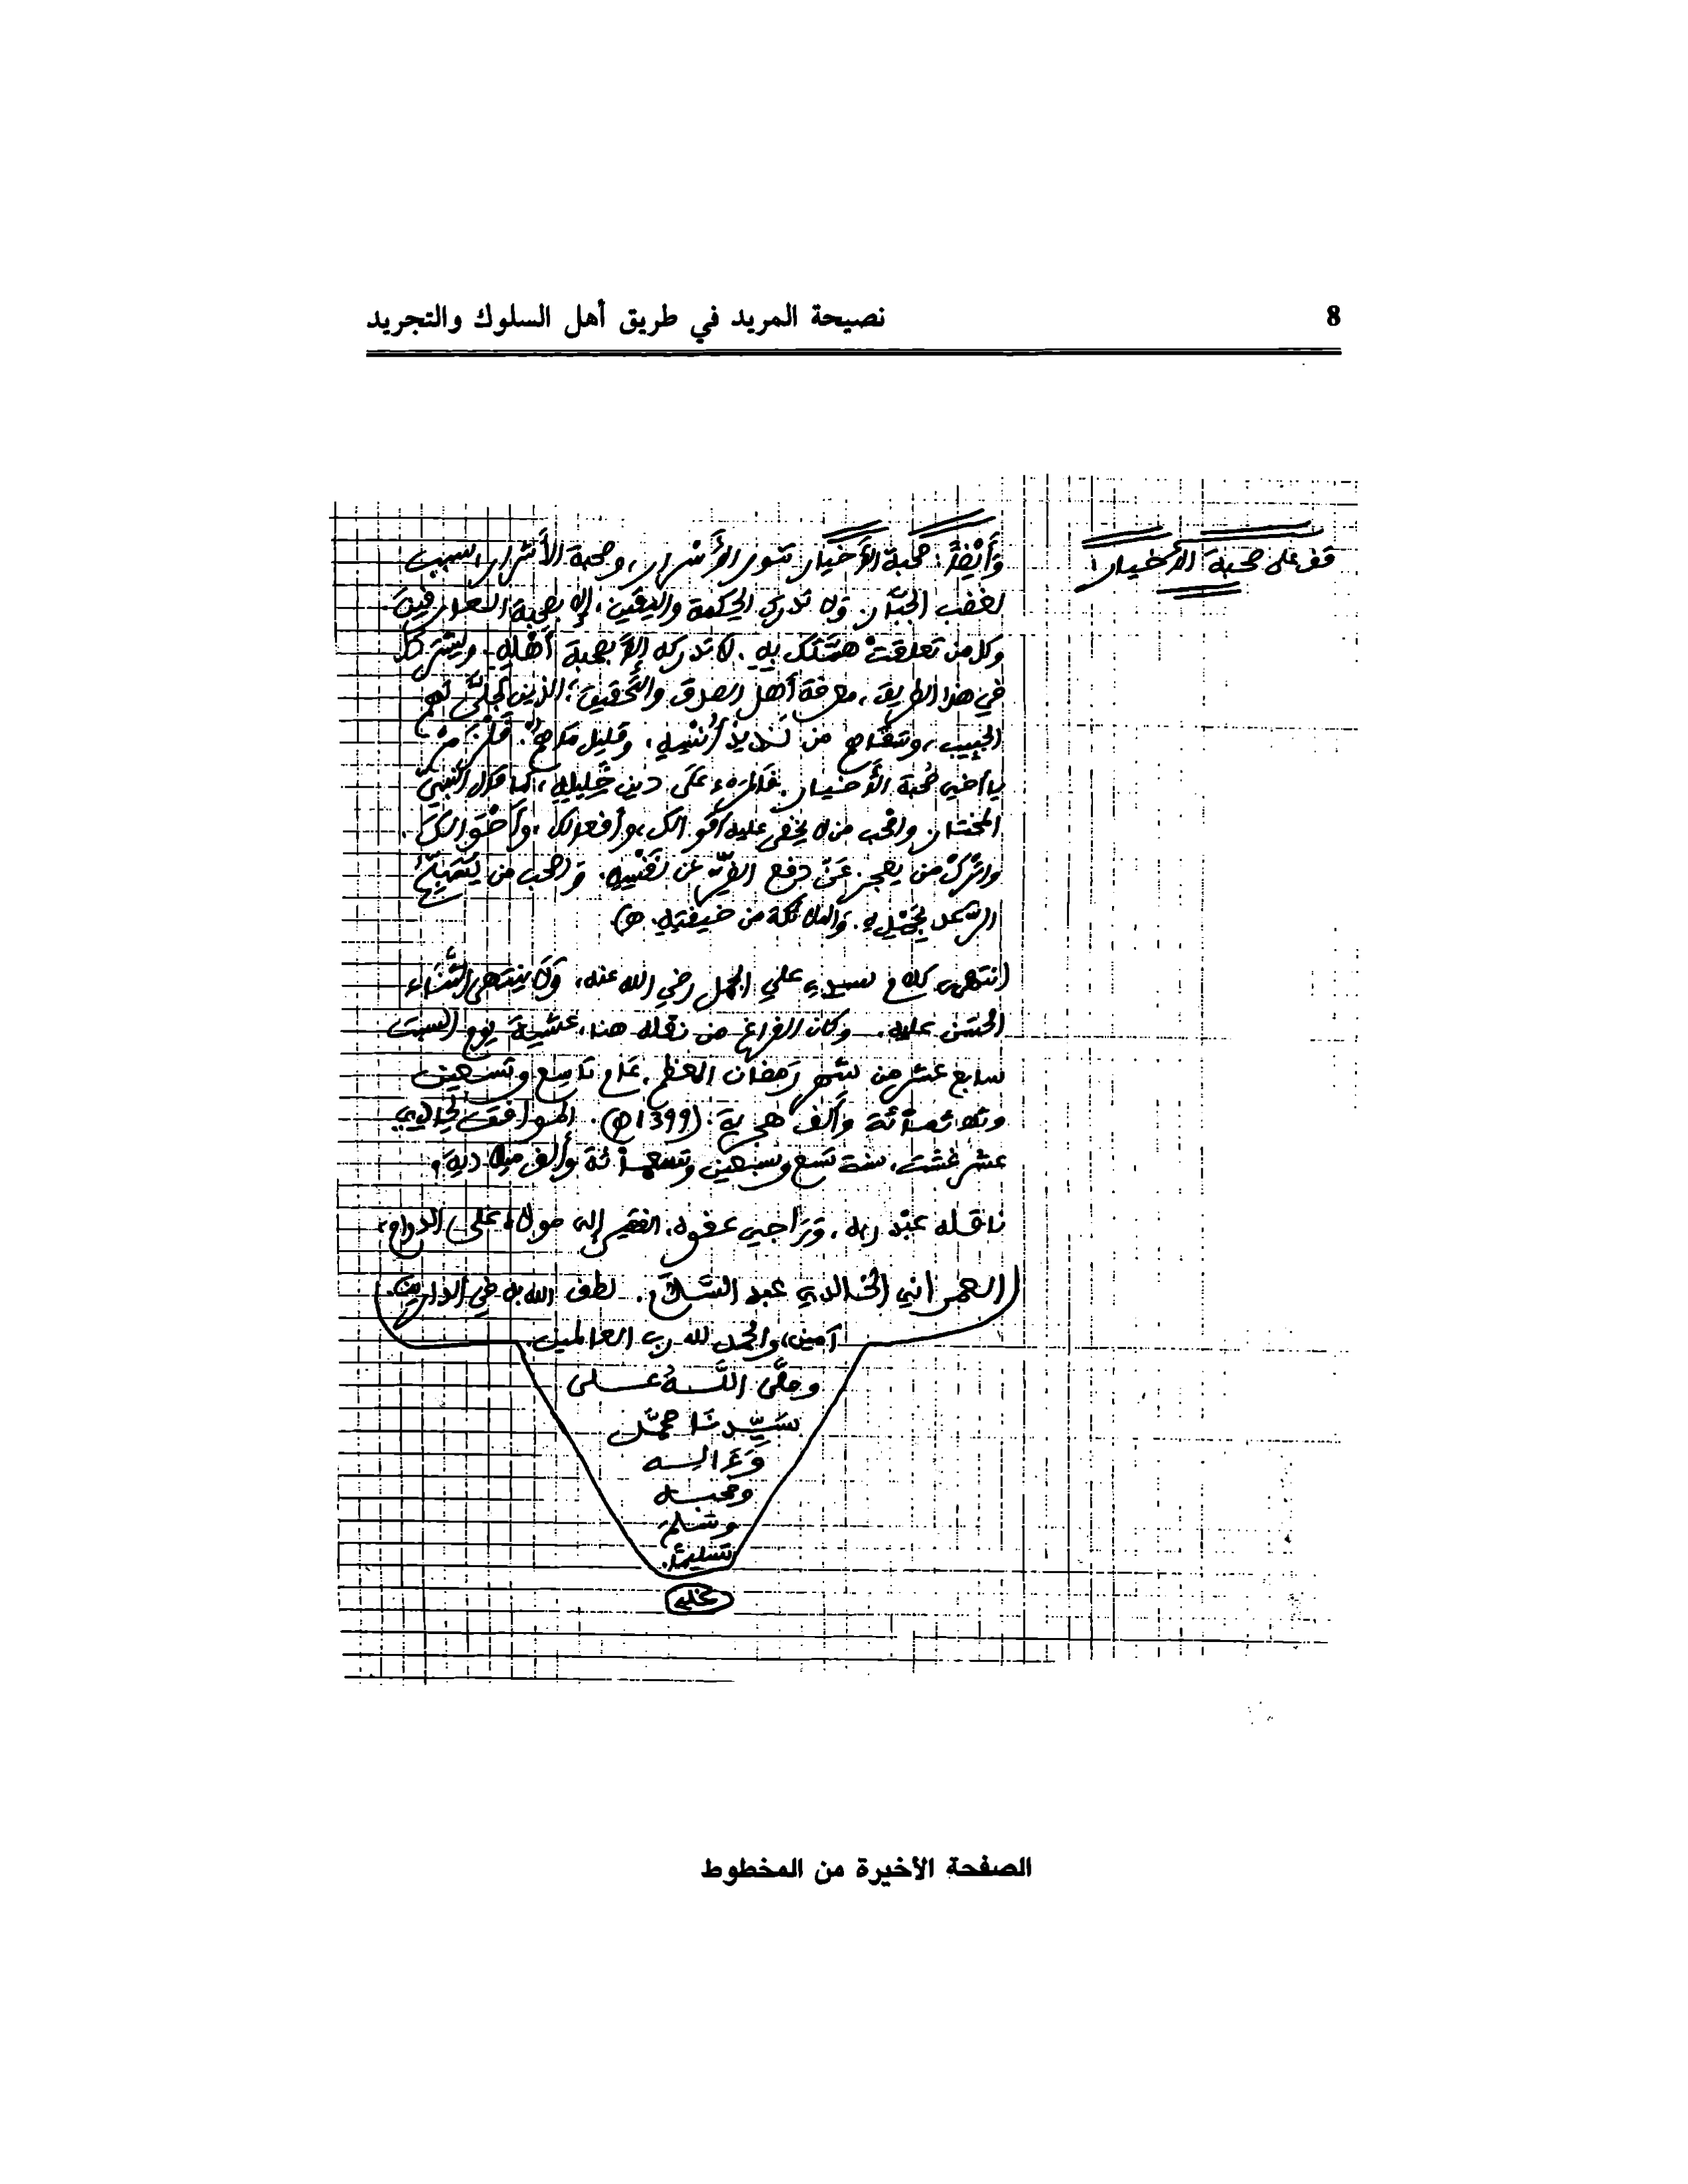 8
نصيحة المريد في طريق أهل السلوك والتجريد
قف على صحبة الأخيار
وَأَيْضًا: صحبة الأَخيار تنور الأَسْرار، وصحبة الأشرار، سبب
لغضب الجبَّار. ولا تدرك الحكمة واليقين، إلا بصحبة العارفين.
وكل من تعلقتْ همتك به. لا تدركه إلا بصحبة أهله.
في هذا الطريق، معرفة أهل الصدق والتَّحقيق؛ الذين تجلَّى لهم
الحبيب، من لذيذ أُنْسِه، وقليل مَا هُمْ.
يا أخي صُحبة الأَخيار. فالمرء على دين خَلِيلِهِ، كما قال النبيّ
المختار. واصحب من لا يخفى عليه أقوالك، وأفعالك، وأحْوَالك.
واتركْ من يعجز عَنْ دفع الضُّرّ عن نَفْسِهِ. واصحب من يُسَبِّحُ
الرّعد بِحَمْدِهِ. والملائكة من خيفته. هـ).
انتهى كلام سيدي علي الجمل رضي الله عنه، وَلَا ينتهي الثَّنَاء
الحسَن عليه. وكان الفراغ من نقله هنا، عشية يوم السبت
سابع عشر من شهر رَمضان المعظم، عَام تاسع وتسعين
وثلاثمائة وألف هجرية: (1399هـ). الموافق لحادي
عشر غشت، سنة تسع وسبعين وتسعمائة وألف ميلادية،
ناقله عبْد ربه، وَرَاجي عفوه، الفقير إلى مولاه على الدوام،
العمراني الخالدي عبد السَّلام. لطف الله به في الدارين.
آمين، والحمد لله رب العالمين.
وصلَّى اللَّهُ على
سَيِّدنَا محمَّد
وَءَاله
وصحبه
وسلم
تسليمًا.
الصفحة الأخيرة من المخطوط